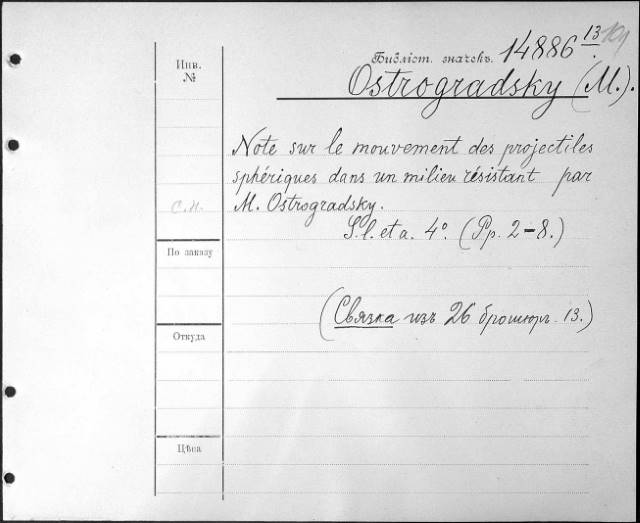 Инв.
№
Библіот. значекъ. 14886 13
Ostrogradsky (M.).
Note sur le mouvement des projectiles
sphériques dans un milieu résistant par
M. Ostrogradsky.
С.Н.
S. l. et a. 4º. (Pp. 2-8.)
По заказу
(Связка изъ 26 брошюр. 13.)
Откуда
Цѣна